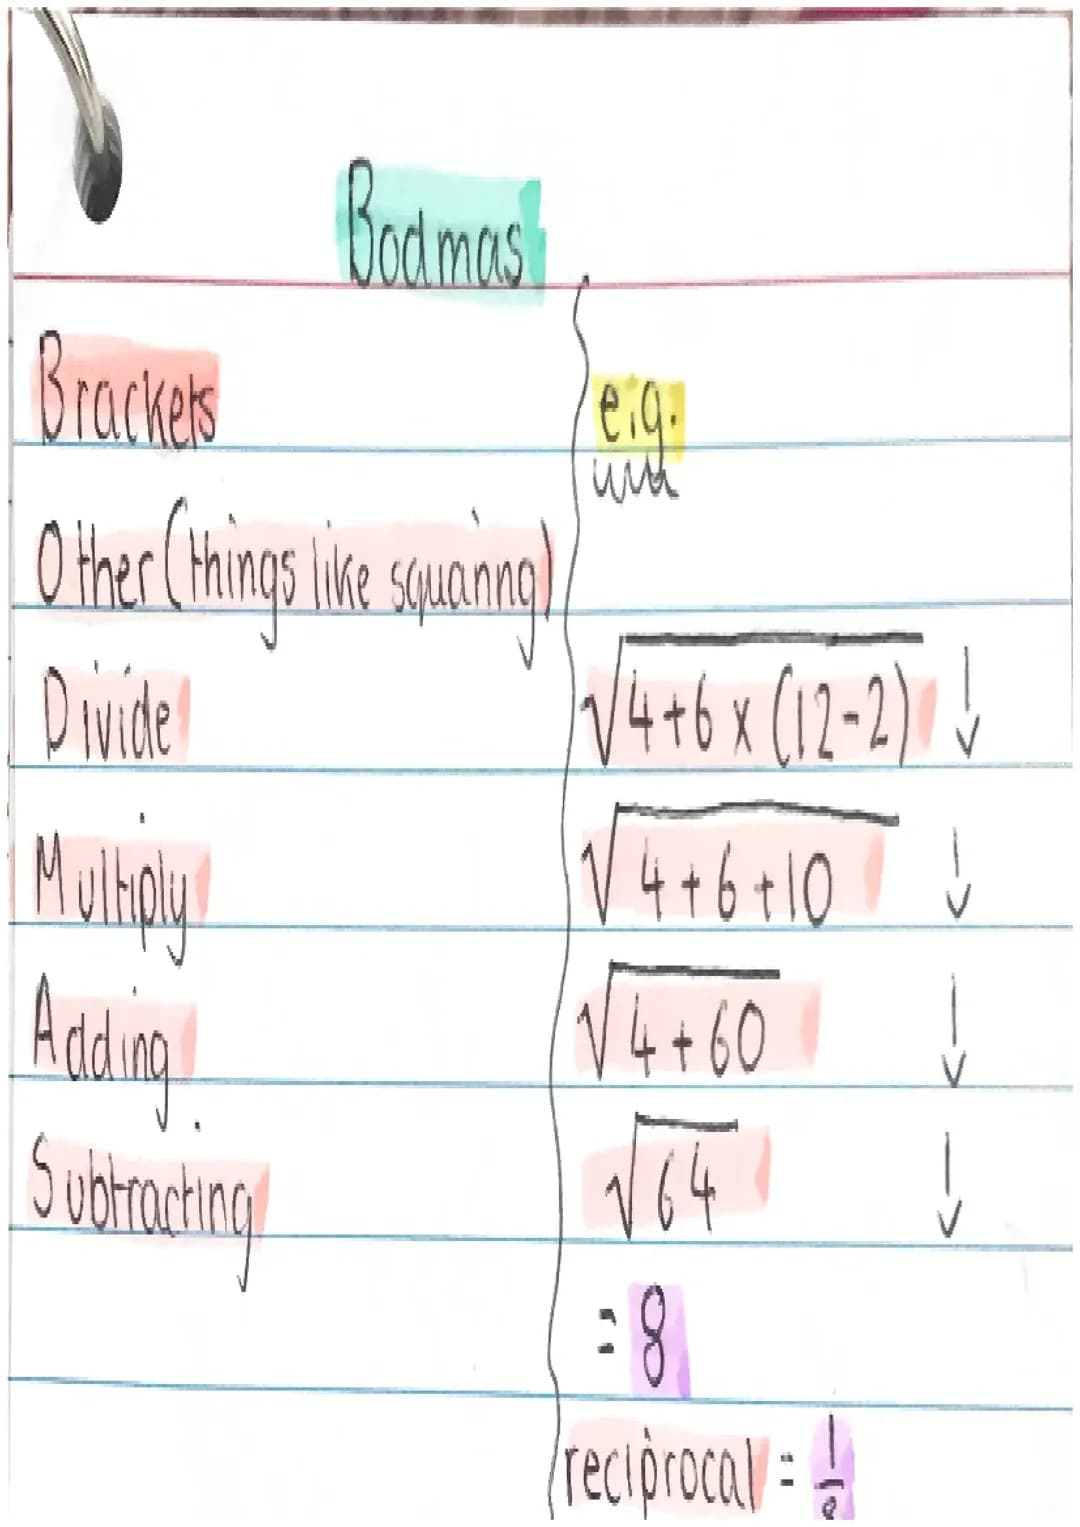 Bodmas
Brackets
Other (things like squaring)
Divide
Multiply
Adding
Subtracting
e.g.
√4+6 x (12-2) ↓
√4+6+10 ↓
√4+60 ↓
√64 ↓
= 8
reciprocal = 1/8